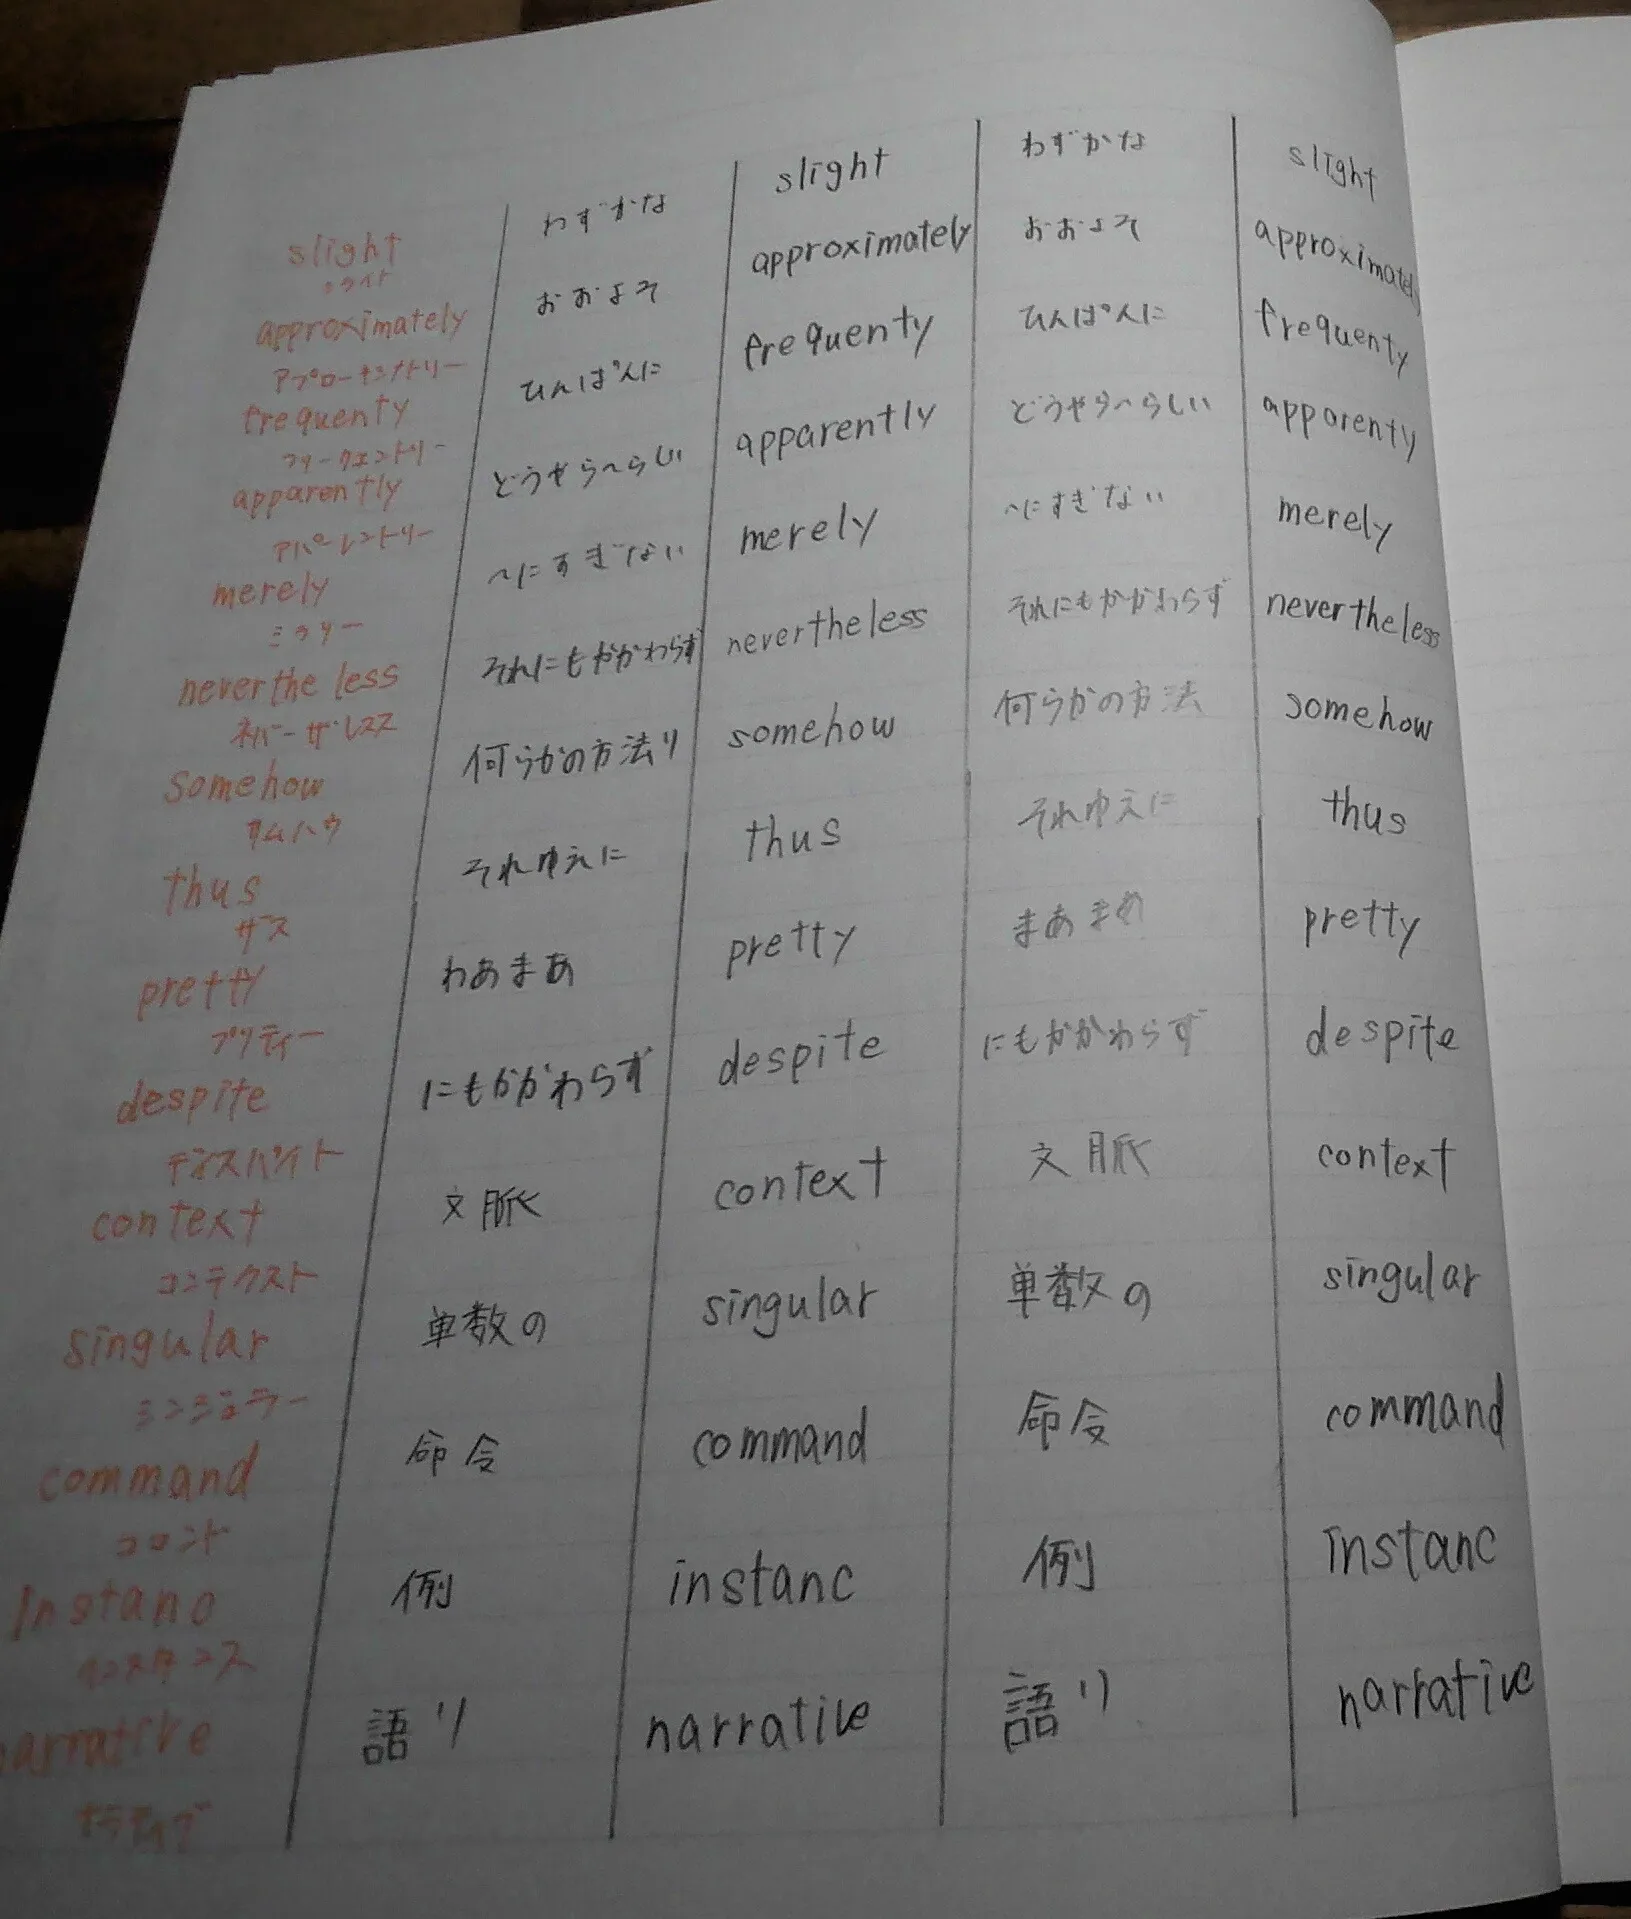 slight わずかな slight わずかな slight
approximately おおよそ approximately おおよそ approximately
アプローキシメトリー
frequenty ひんぱんに frequenty ひんぱんに frequenty
フリークエントリー
apparently どうやら〜らしい apparently どうやら〜らしい apparenty
アパレントリー
merely 〜にすぎない merely 〜にすぎない merely
ミラリー
nevertheless それにもかかわらず nevertheless それにもかかわらず nevertheless
ネバーザレスス
somehow 何らかの方法り somehow 何らかの方法 somehow
サムハウ
thus それゆえに thus それゆえに thus
ザス
pretty わあまあ pretty まあまあ pretty
プリティー
despite にもかかわらず despite にもかかわらず despite
ディスパイト
context 文脈 context 文脈 context
コンテクスト
singular 単数の singular 単数の singular
シンジュラー
command 命令 command 命令 command
例 instanc 例 instanc
インスタンス
narrative 語り narrative 語り narrative
ナラティブ